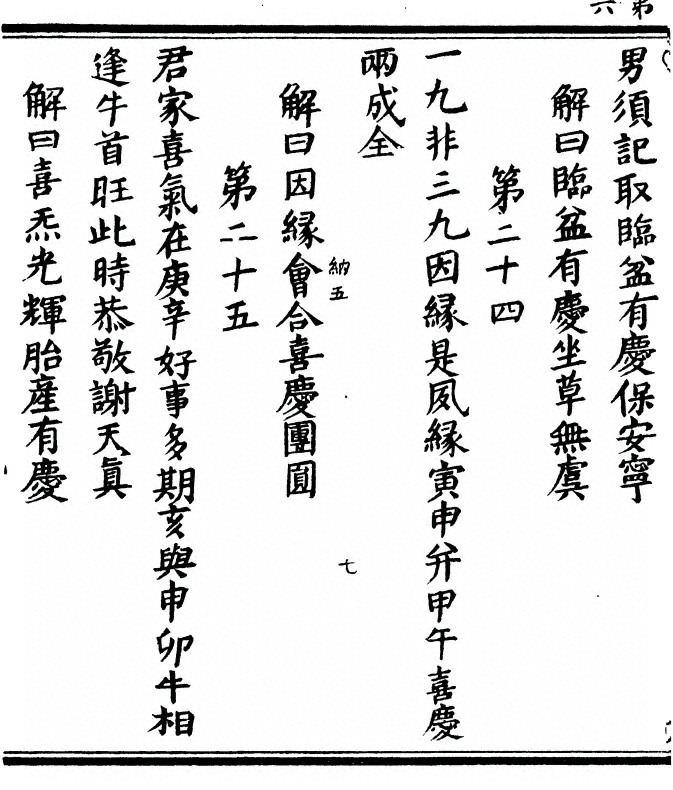 第六
男須記取臨盆有慶保安寧
解曰臨盆有慶坐草無虞
第二十四
一九非三九因緣是夙緣寅申并甲午喜慶
兩成全
納五
七
解曰因緣會合喜慶團圓
第二十五
君家喜氣在庚辛好事多期亥與申卯牛相
逢牛首旺此時恭敬謝天真
解曰喜炁光輝胎產有慶